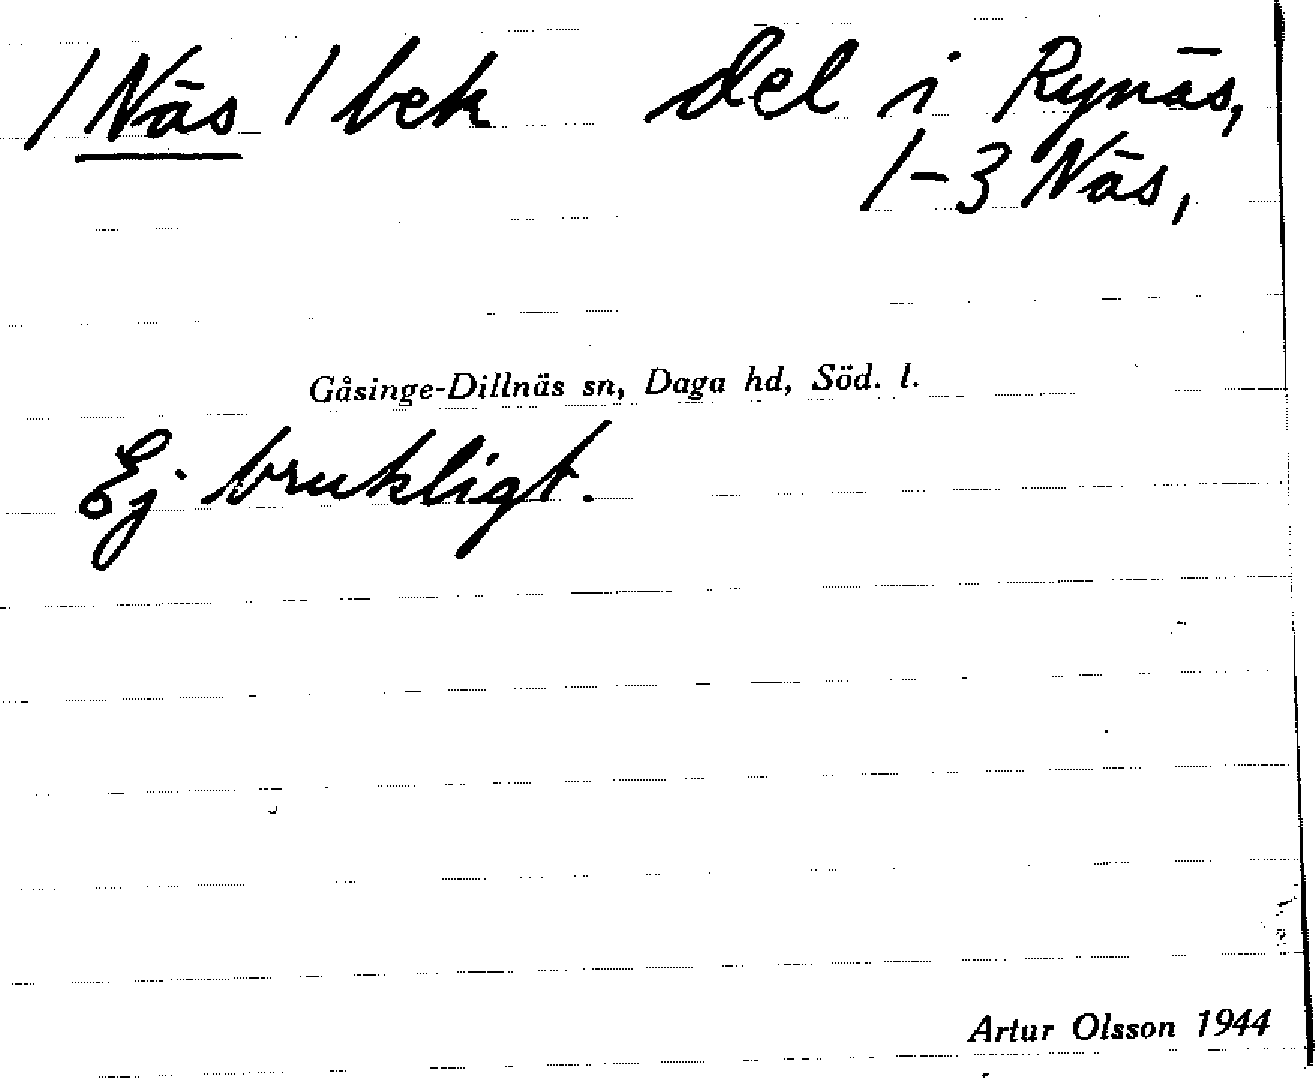 1 Näs 1 bek del i Rynäs,
1-3 Näs,
Gåsinge-Dillnäs sn, Daga hd, Söd. l.
Ej brukligt.
Artur Olsson 1944